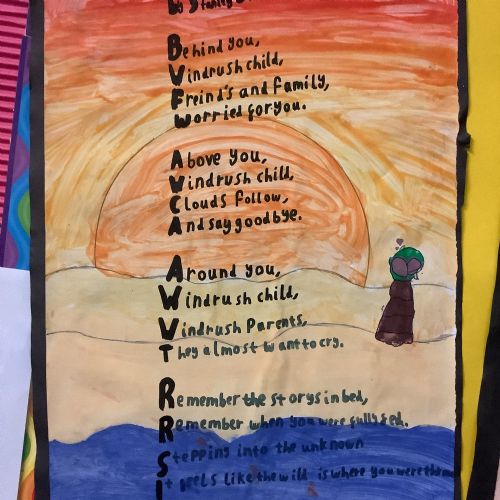 By Stanley
Behind you,
Windrush child,
Freind's and family,
Worried for you.
Above you,
Windrush child,
Clouds follow,
And say goodbye.
Around you,
Windrush child,
Vindrush Parents,
They almost want to cry.
Remember the storys in bed,
Remember when you were fully fed.
Stepping into the unknown
It feels like the wild is where you were